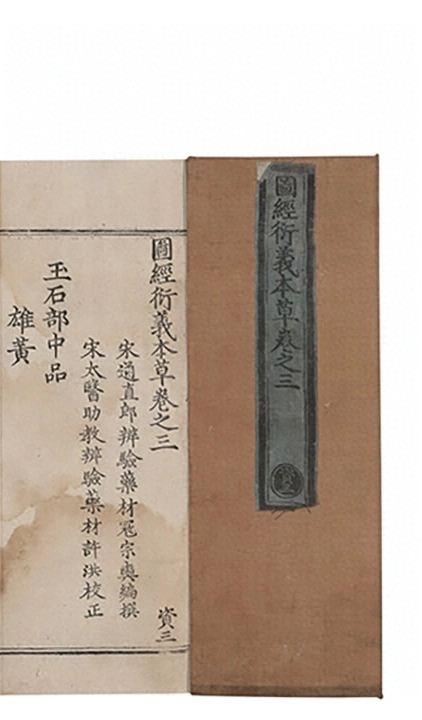 圖經衍義本草卷之三
圖經衍義本草卷之三
宋通直郎辨驗藥材冦宗奭編撰
宋太醫助教辨驗藥材許洪校正
玉石部中品
雄黃
資三